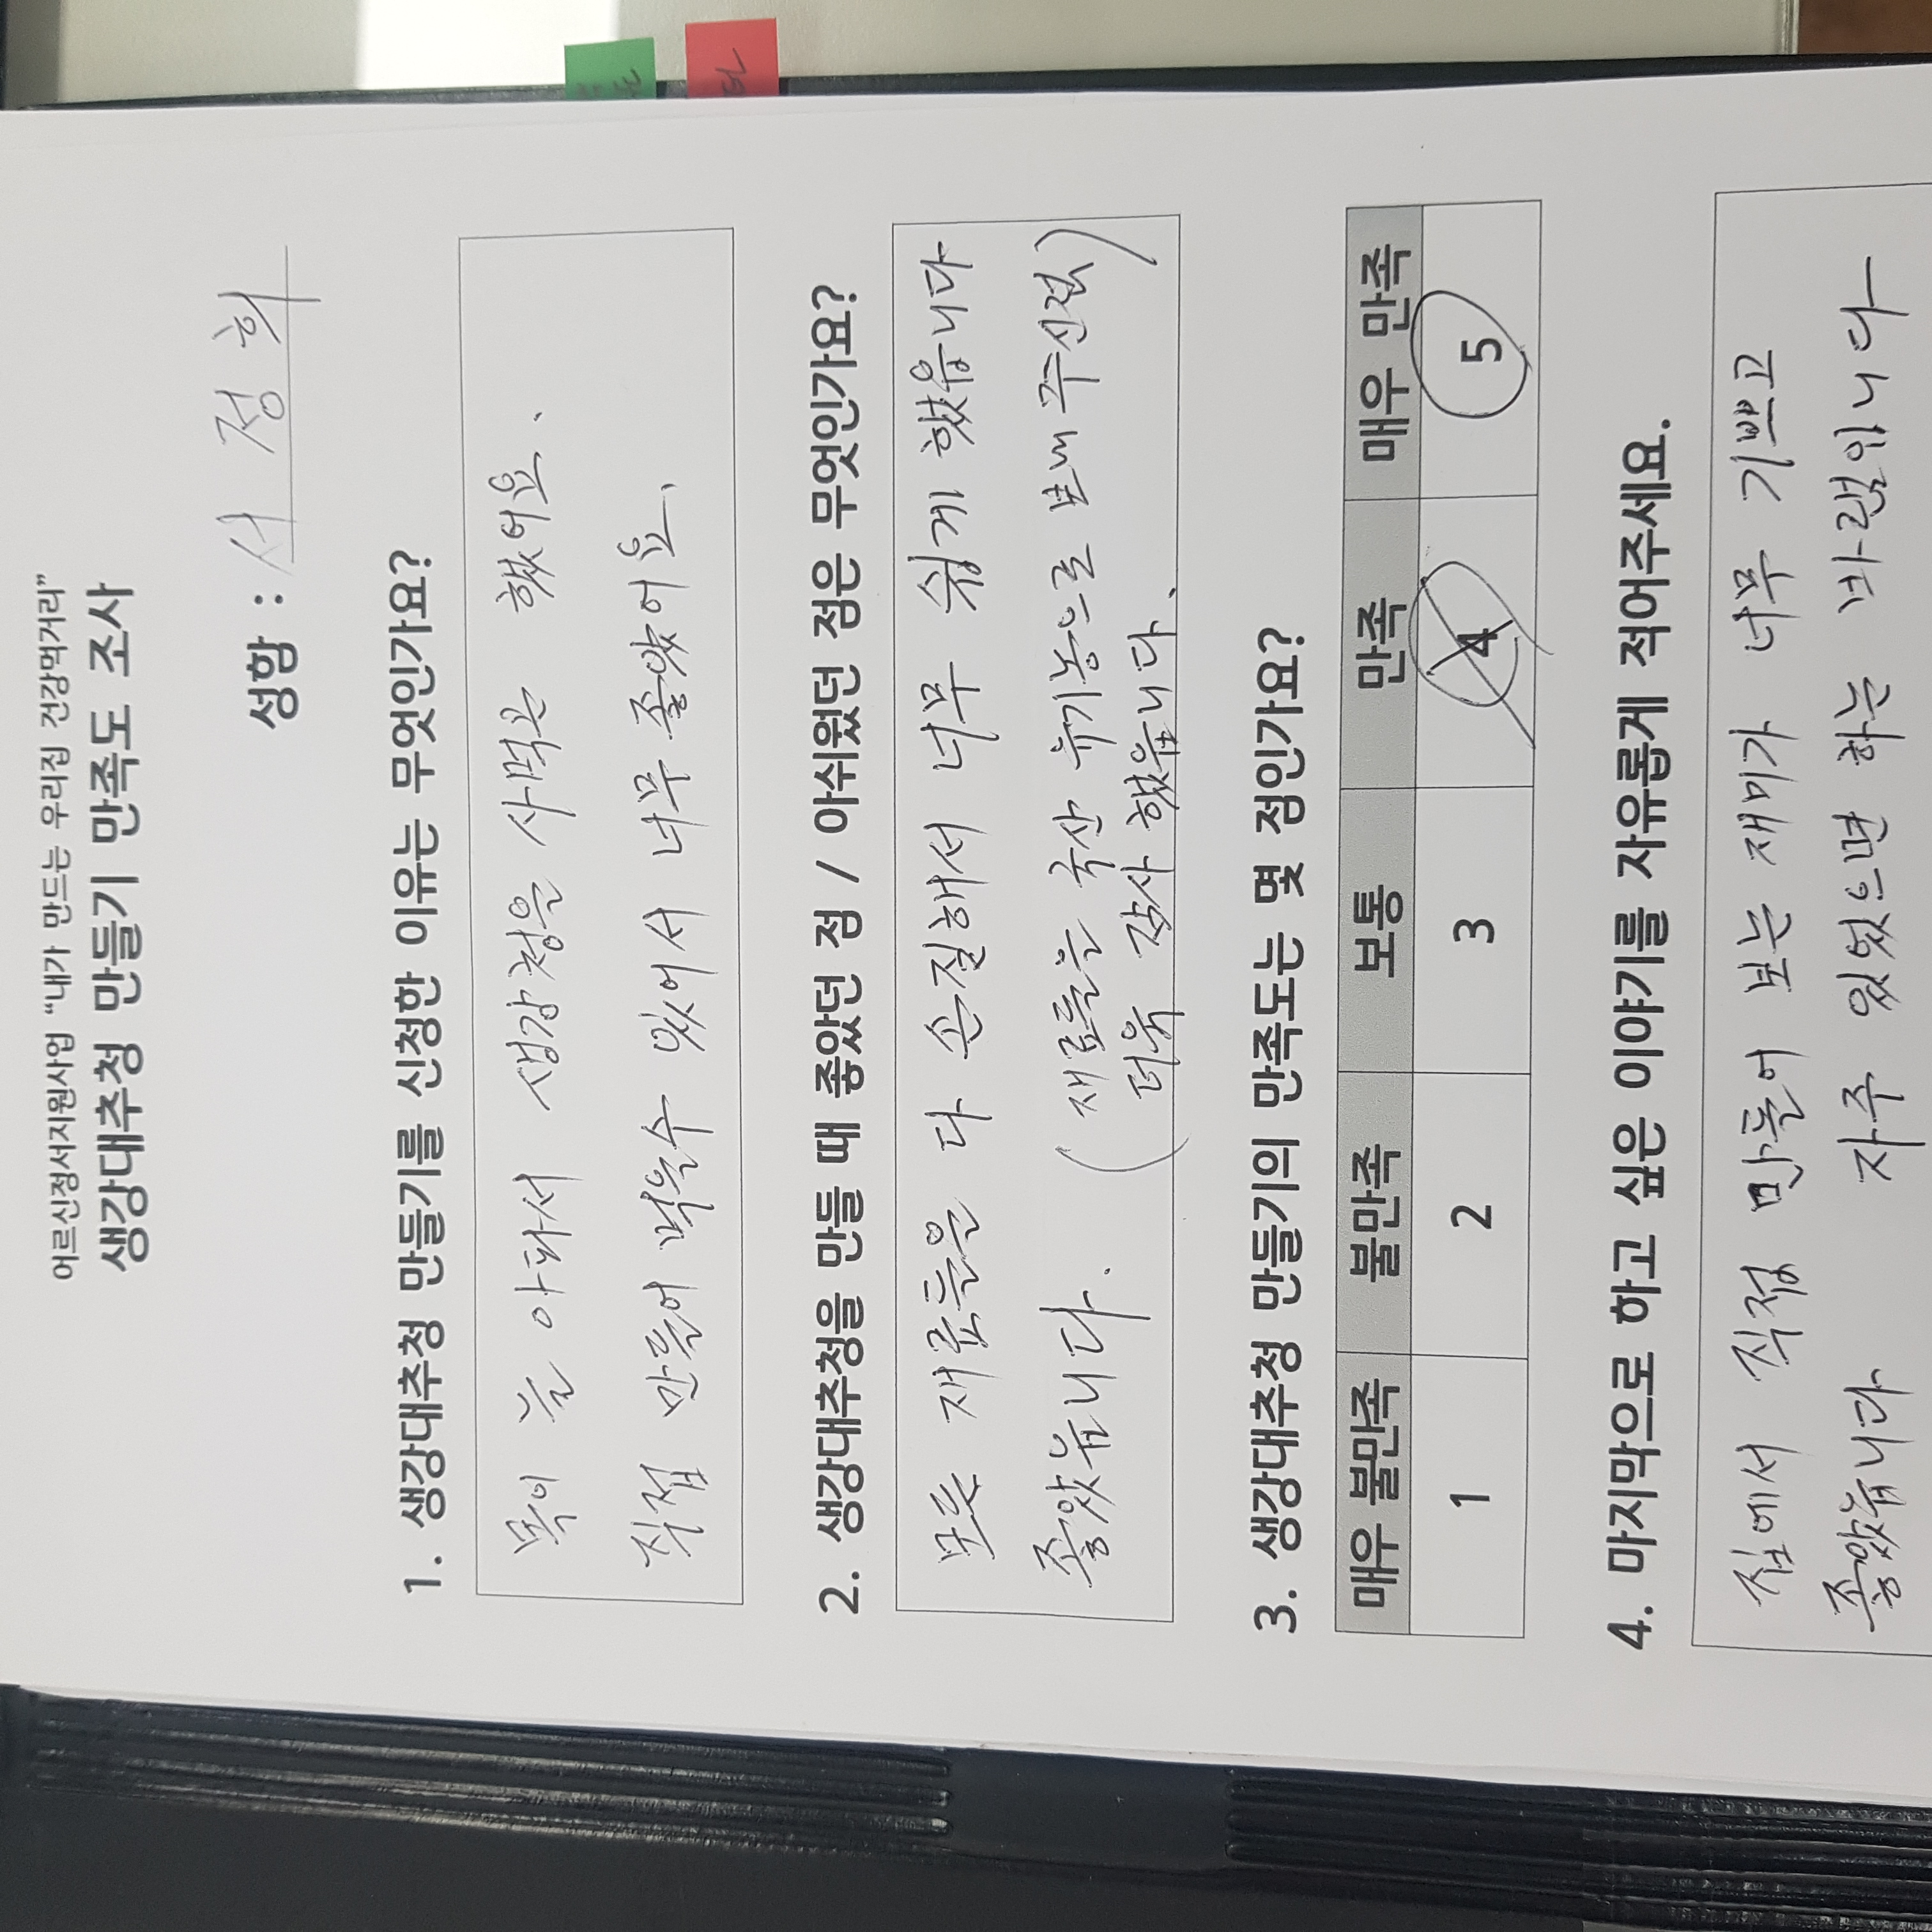 어르신정서지원사업 “내가 만드는 우리집 건강먹거리”
생강대추청 만들기 만족도 조사
성함 : 서 정 희
1. 생강대추청 만들기를 신청한 이유는 무엇인가요?
목이 늘 아파서 생강청을 사먹곤 했어요.
직접 만들어 먹을수 있어서 너무 좋았어요.
2. 생강대추청을 만들 때 좋았던 점 / 아쉬웠던 점은 무엇인가요?
모든 재료들을 다 손질해서 너무 쉽게 했읍니다
좋았읍니다. (재료들은 국산 유기농으로 보내주신점)
더욱 감사 했읍니다.
3. 생강대추청 만들기의 만족도는 몇 점인가요?
매우 불만족 불만족 보통 만족 매우 만족
1 2 3 4 5
4. 마지막으로 하고 싶은 이야기를 자유롭게 적어주세요.
집에서 직접 만들어 보는 재미가 너무 기쁘고
좋았읍니다 자주 있었으면 하는 바램입니다